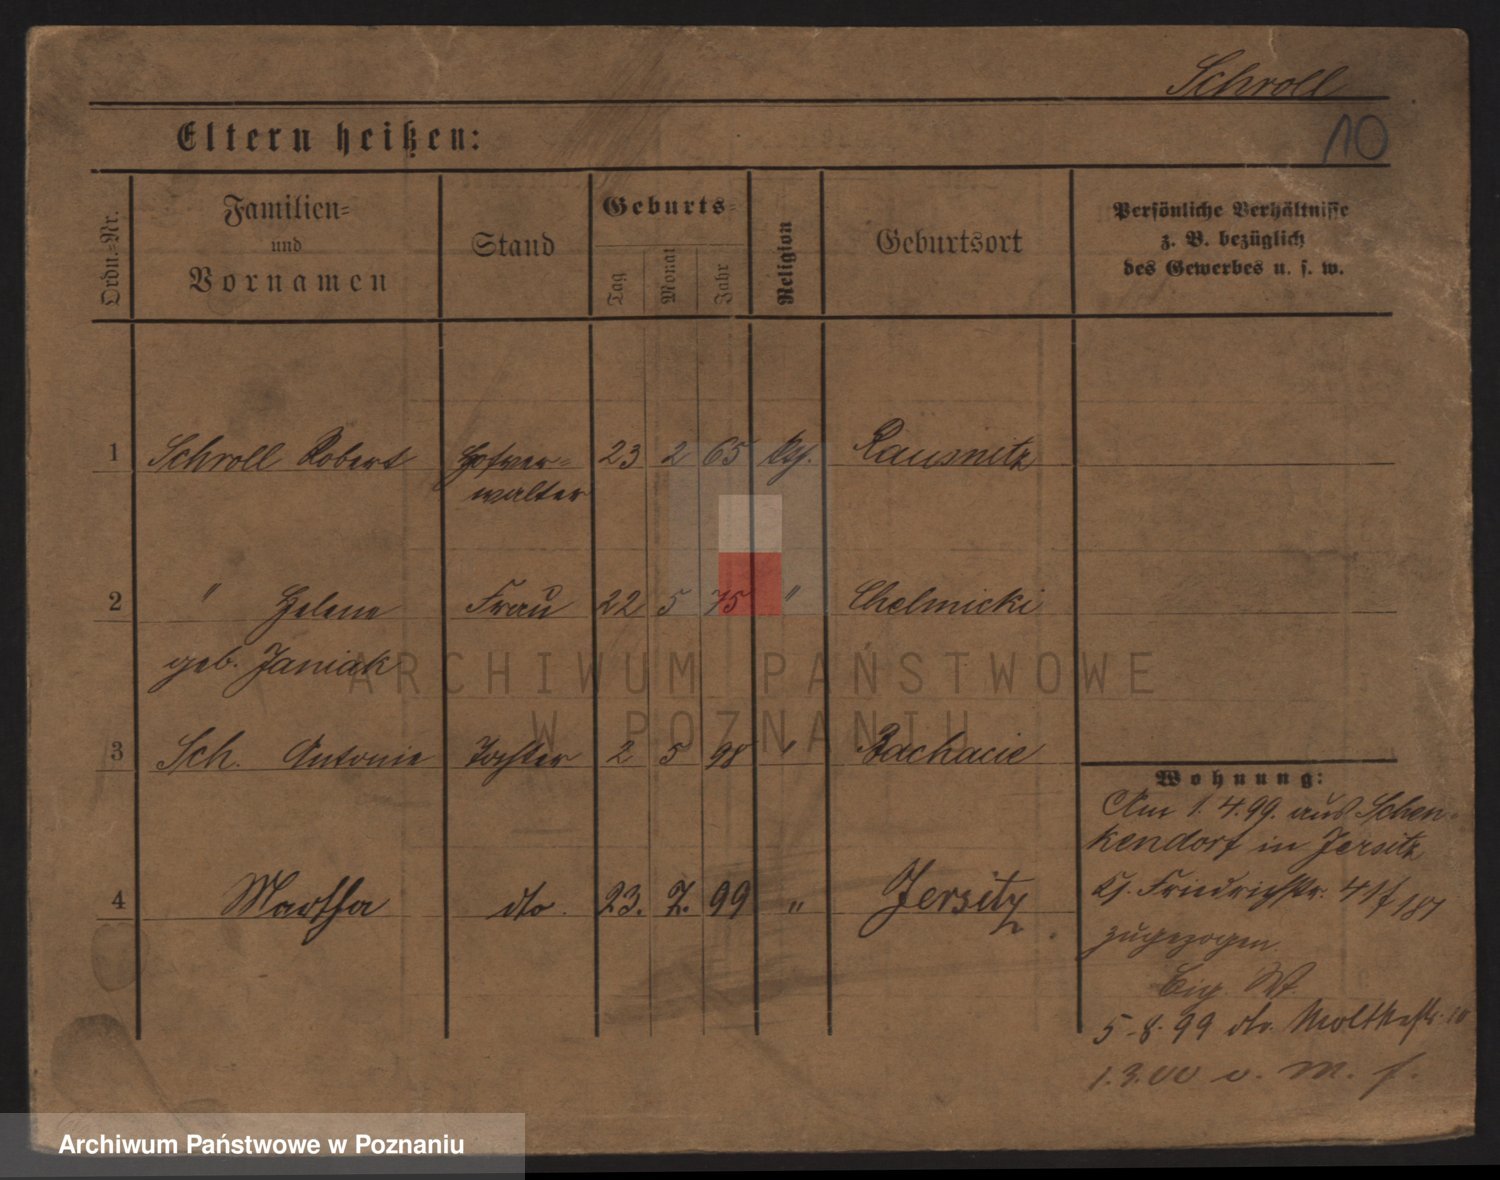 Schroll
10
Eltern heißen:
Ordn.-Nr.
Familien-
und
Vornamen
Stand
Geburts-
Tag
Monat
Jahr
Religion
Geburtsort
Persönliche Verhältnisse
z. B. bezüglich
des Gewerbes u. s. w.
1 Schroll Robert Hofver- 23 2 65 Rausnitz
walter
2 " Helene Frau 22 5 75 " Chelmicki
geb. Janiak
3 Sch. Antonie Tochter 2 5 98 " Zachacie
Wohnung:
Am 1.4.99. aus Schen-
kendorf in Jersitz
Friedrichstr. 41 f 187
zugezogen.
4 Martha dto. 23. 7. 99 " Jersitz
5.8.99 do. Moltkestr. 10
1.3.00 v. M. f.
ARCHIWUM PAŃSTWOWE
W POZNANIU
Archiwum Państwowe w Poznaniu